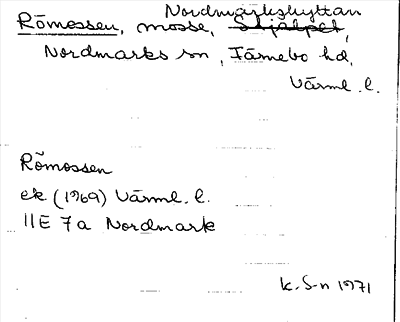 Nordmarkshyttan
Römossen, mosse, Stjälpet,
Nordmarks sn, Färnebo hd,
Värml. l.
Römossen
ek (1969) Värml. l.
11E 7a Nordmark
K. S-n 1971